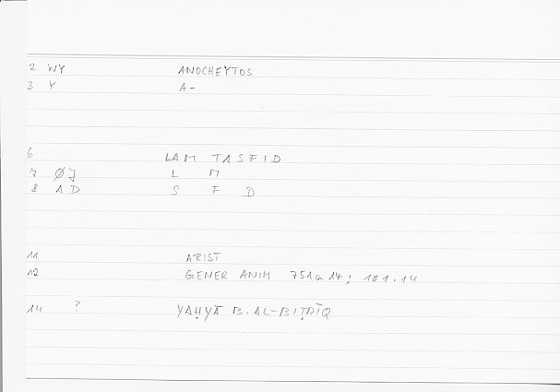 2 WY ANOCHEYTOS
3 Y A-
6 LAM TASFID
7 ØJ L M
8 AD S F D
11 ARIST
12 GENER ANIM 751a14; 161.14
14 ? YAḤYĀ B. AL-BIṬRĪQ